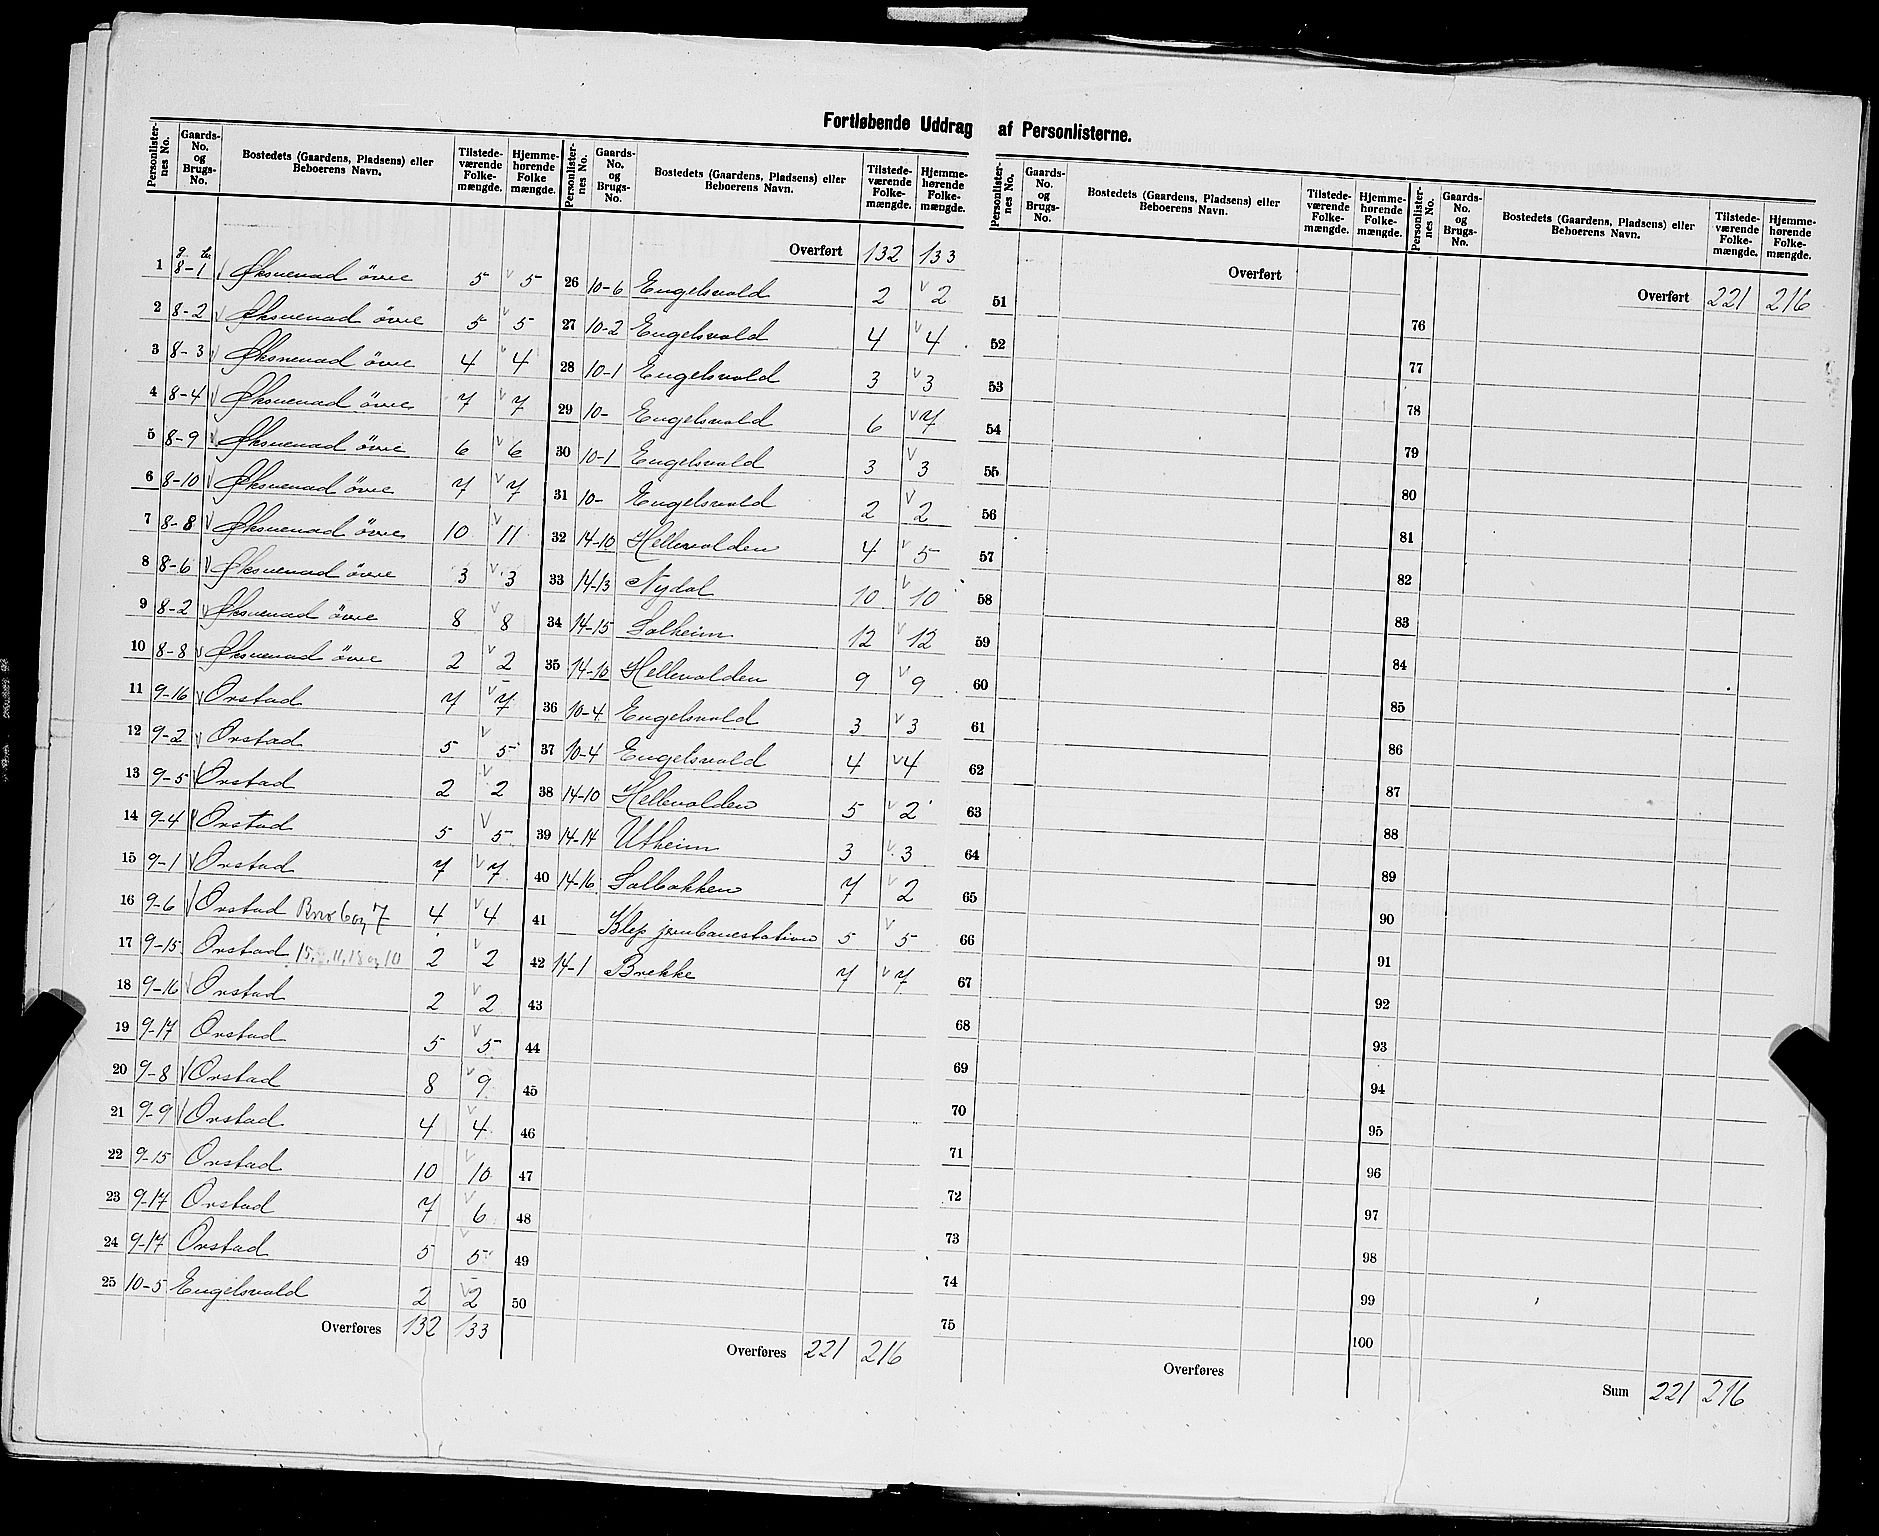 Fortløbende Uddrag af Personlisterne.
Personlister-nes No. | Gaards-No. og Brugs-No. | Bostedets (Gaardens, Pladsens) eller Beboerens Navn. | Tilstede-værende Folke-mængde. | Hjemme-hørende Folke mængde.
g. br.
1 8-1 Øksnevad övre 5 5
2 8-2 Øksnevad övre 5 5
3 8-3 Øksnevad övre 4 4
4 8-4 Øksnevad övre 7 7
5 8-9 Øksnevad övre 6 6
6 8-10 Øksnevad övre 7 7
7 8-8 Øksnevad övre 10 11
8 8-6 Øksnevad övre 3 3
9 8-2 Øksnevad övre 8 8
10 8-8 Øksnevad övre 2 2
11 9-16 Orstad 7 7
12 9-2 Orstad 5 5
13 9-5 Orstad 2 2
14 9-4 Orstad 5 5
15 9-1 Orstad 7 7
16 9-6 Orstad Brno 6 og 7 4 4
17 9-15 Orstad 15, 11, 18 og 10 2 2
18 9-16 Orstad 2 2
19 9-17 Orstad 5 5
20 9-8 Orstad 8 9
21 9-9 Orstad 4 4
22 9-15 Orstad 10 10
23 9-17 Orstad 7 6
24 9-17 Orstad 5 5
25 10-5 Engelsvold 2 2
Overføres 132 133
Personlister-nes No. | Gaards-No. og Brugs-No. | Bostedets (Gaardens, Pladsens) eller Beboerens Navn. | Tilstede-værende Folke-mængde. | Hjemme-hørende Folke-mængde.
Overført 132 133
26 10-6 Engelsvold 2 2
27 10-2 Engelsvold 4 4
28 10-1 Engelsvold 3 3
29 10- Engelsvold 6 7
30 10-1 Engelsvold 3 3
31 10- Engelsvold 2 2
32 14-10 Hellevolden 4 5
33 14-13 Nydal 10 10
34 14-15 Solheim 12 12
35 14-10 Hellevolden 9 9
36 10-4 Engelsvold 3 3
37 10-4 Engelsvold 4 4
38 14-10 Hellevolden 5 2
39 14-14 Utheim 3 3
40 14-16 Solbakken 7 2
41 — Klep jernbanestation 5 5
42 14-1 Brekke 7 7
43
44
45
46
47
48
49
50
Overføres 221 216
Personlister-nes No. | Gaards-No. og Brugs-No. | Bostedets (Gaardens, Pladsens) eller Beboerens Navn. | Tilstede-værende Folke-mængde. | Hjemme-hørende Folke-mængde.
Overført
51
52
53
54
55
56
57
58
59
60
61
62
63
64
65
66
67
68
69
70
71
72
73
74
75
Overføres
Personlister-nes No. | Gaards-No. og Brugs-No. | Bostedets (Gaardens, Pladsens) eller Beboerens Navn. | Tilstede-værende Folke-mængde. | Hjemme-hørende Folke-mængde.
Overført 221 216
76
77
78
79
80
81
82
83
84
85
86
87
88
89
90
91
92
93
94
95
96
97
98
99
100
Sum 221 216